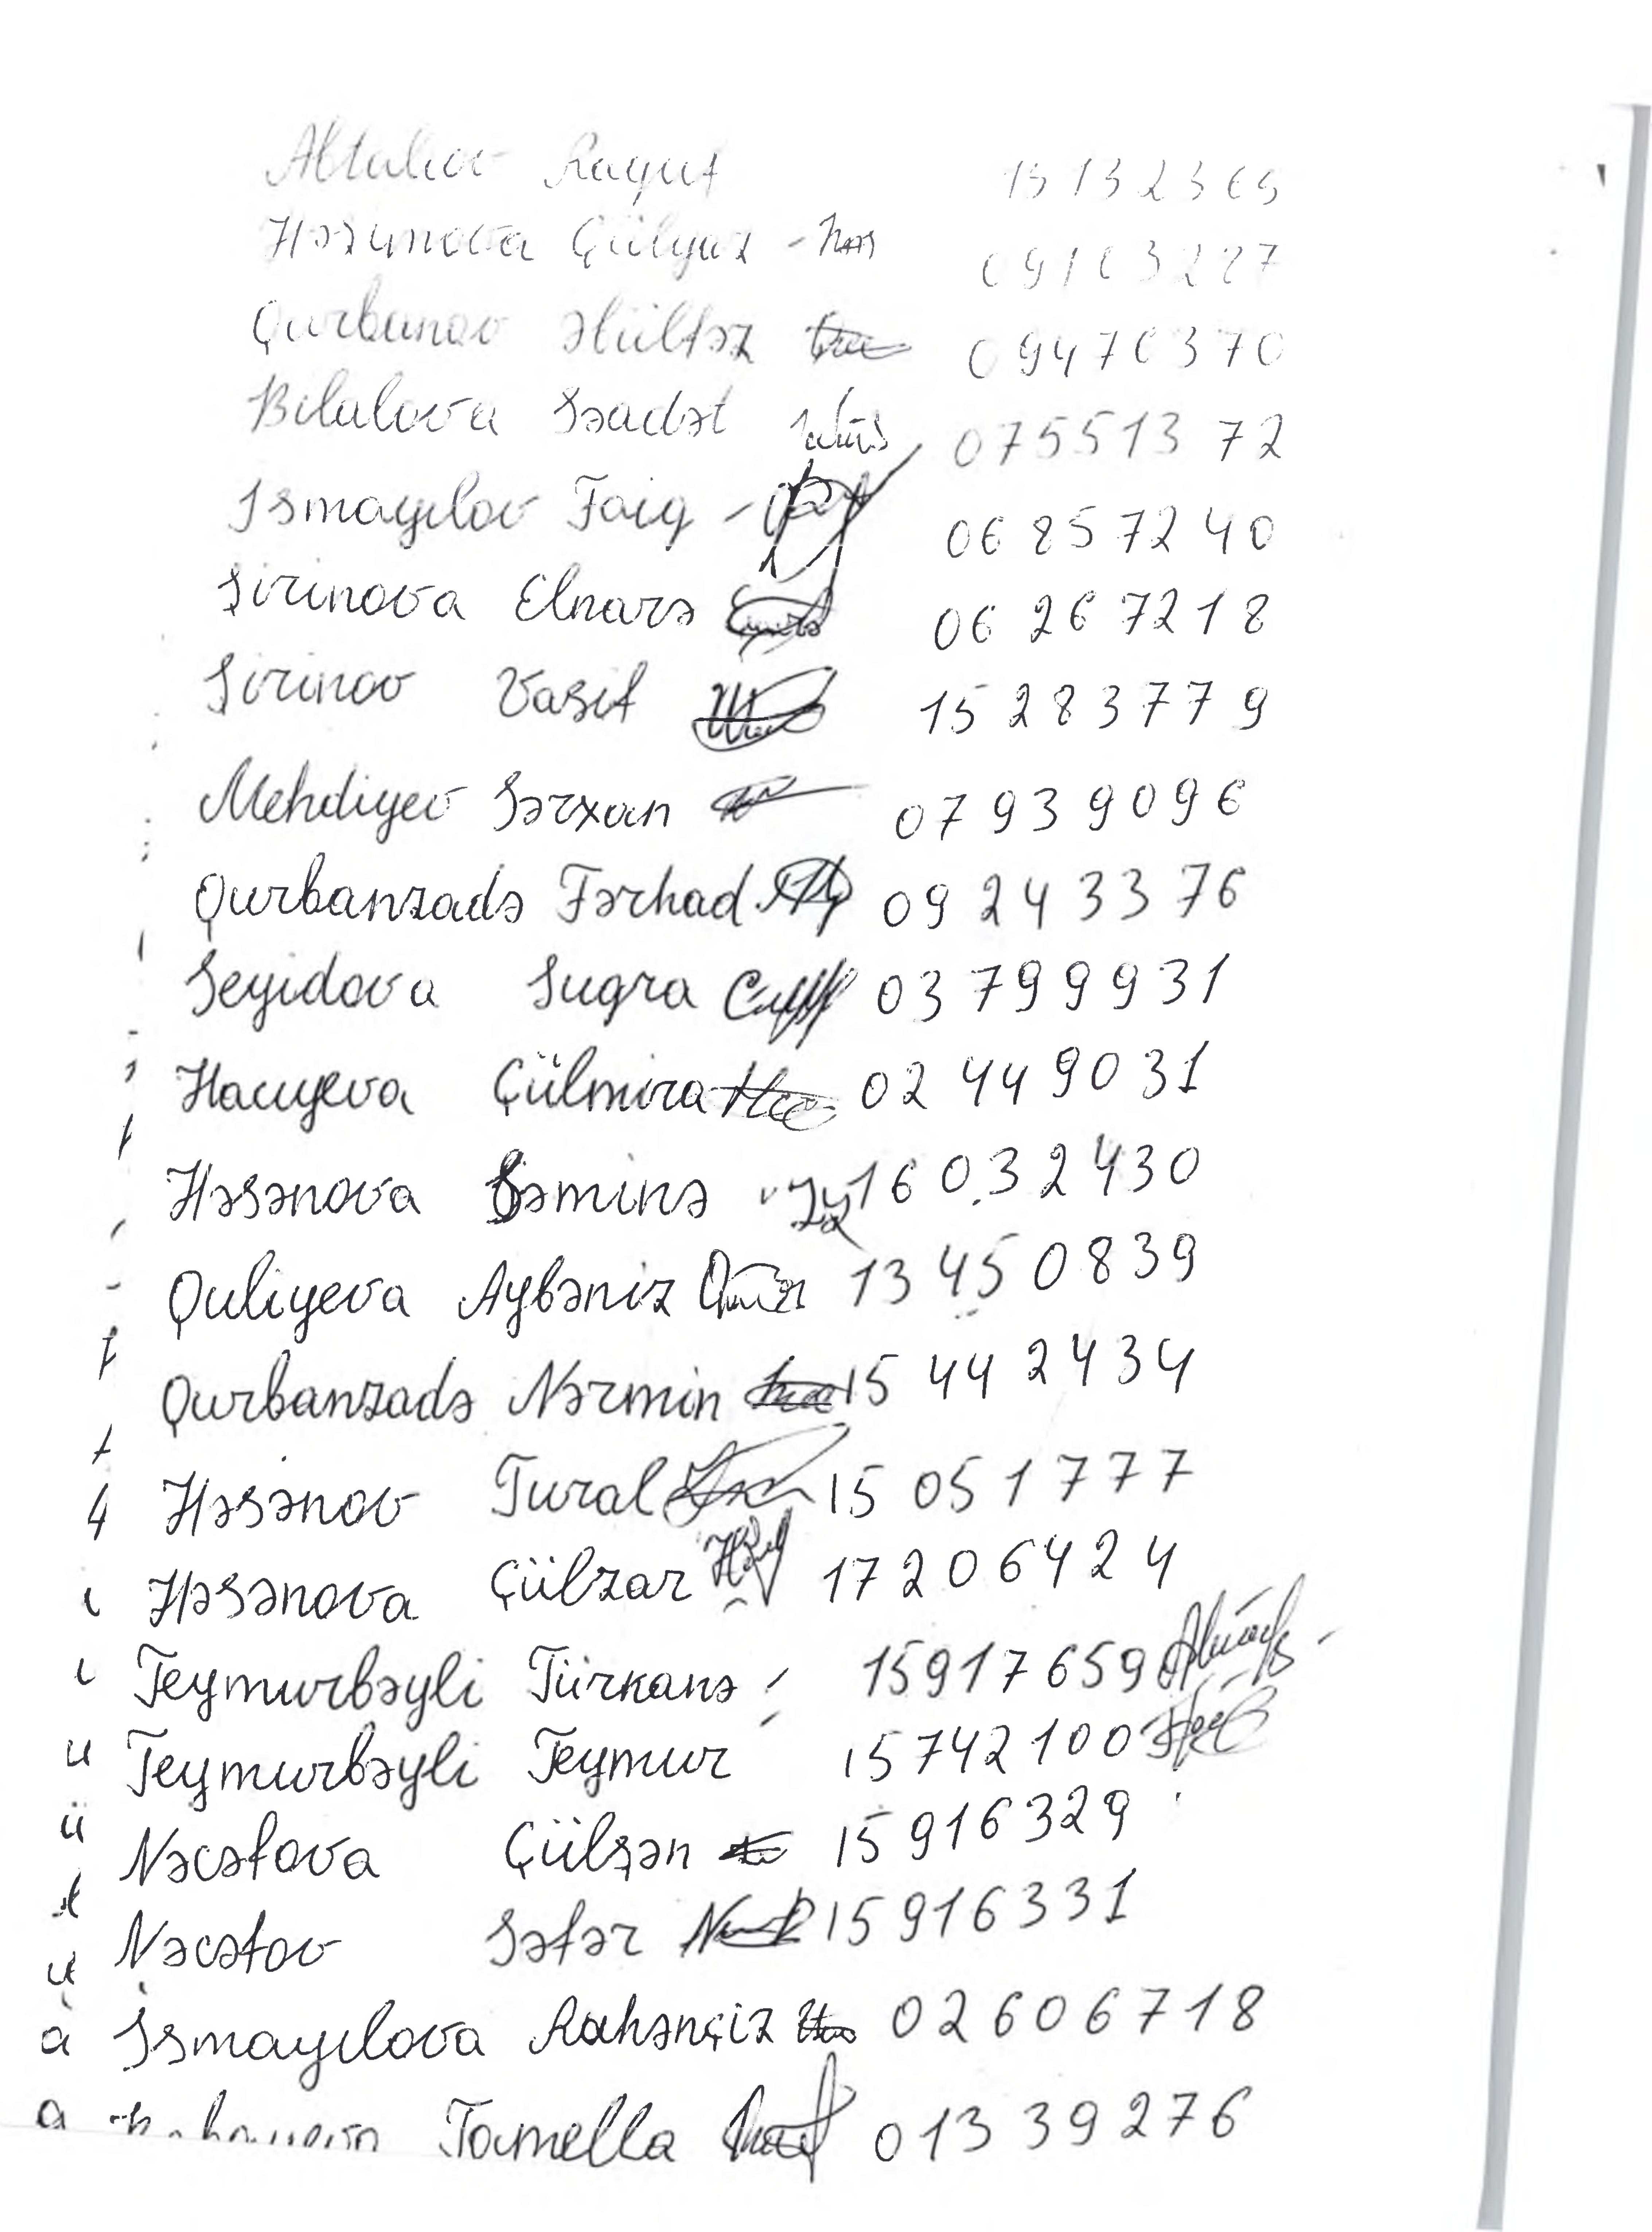 15132369
Həsənova Çülyaz 09103227
Qurbanov 09470370
Bilalova Səadət 07551372
Ismayılov Faiq 06857240
Şirinova Elnarə 06267218
Şirinov Vasif 15283779
Mehdiyev Sərxan 07939096
Qurbanzadə Fərhad 09243376
Seyidova Sugra 03799931
Hacıyeva Çülmira 02449031
Həsənova Səminə 16032430
Quliyeva Aybəniz 13450839
Qurbanzadə Nərmin 15442434
Həsənov Tural 15051777
Həsənova Çülzar 17206424
Teymurbəyli Türkanə 15917659
Teymurbəyli Teymur 15742100
Nəcəfova Çülşən 15916329
Nəcəfov Səfər 15916331
İsmayılova Rahənçiz 02606718
Tamella 01339276